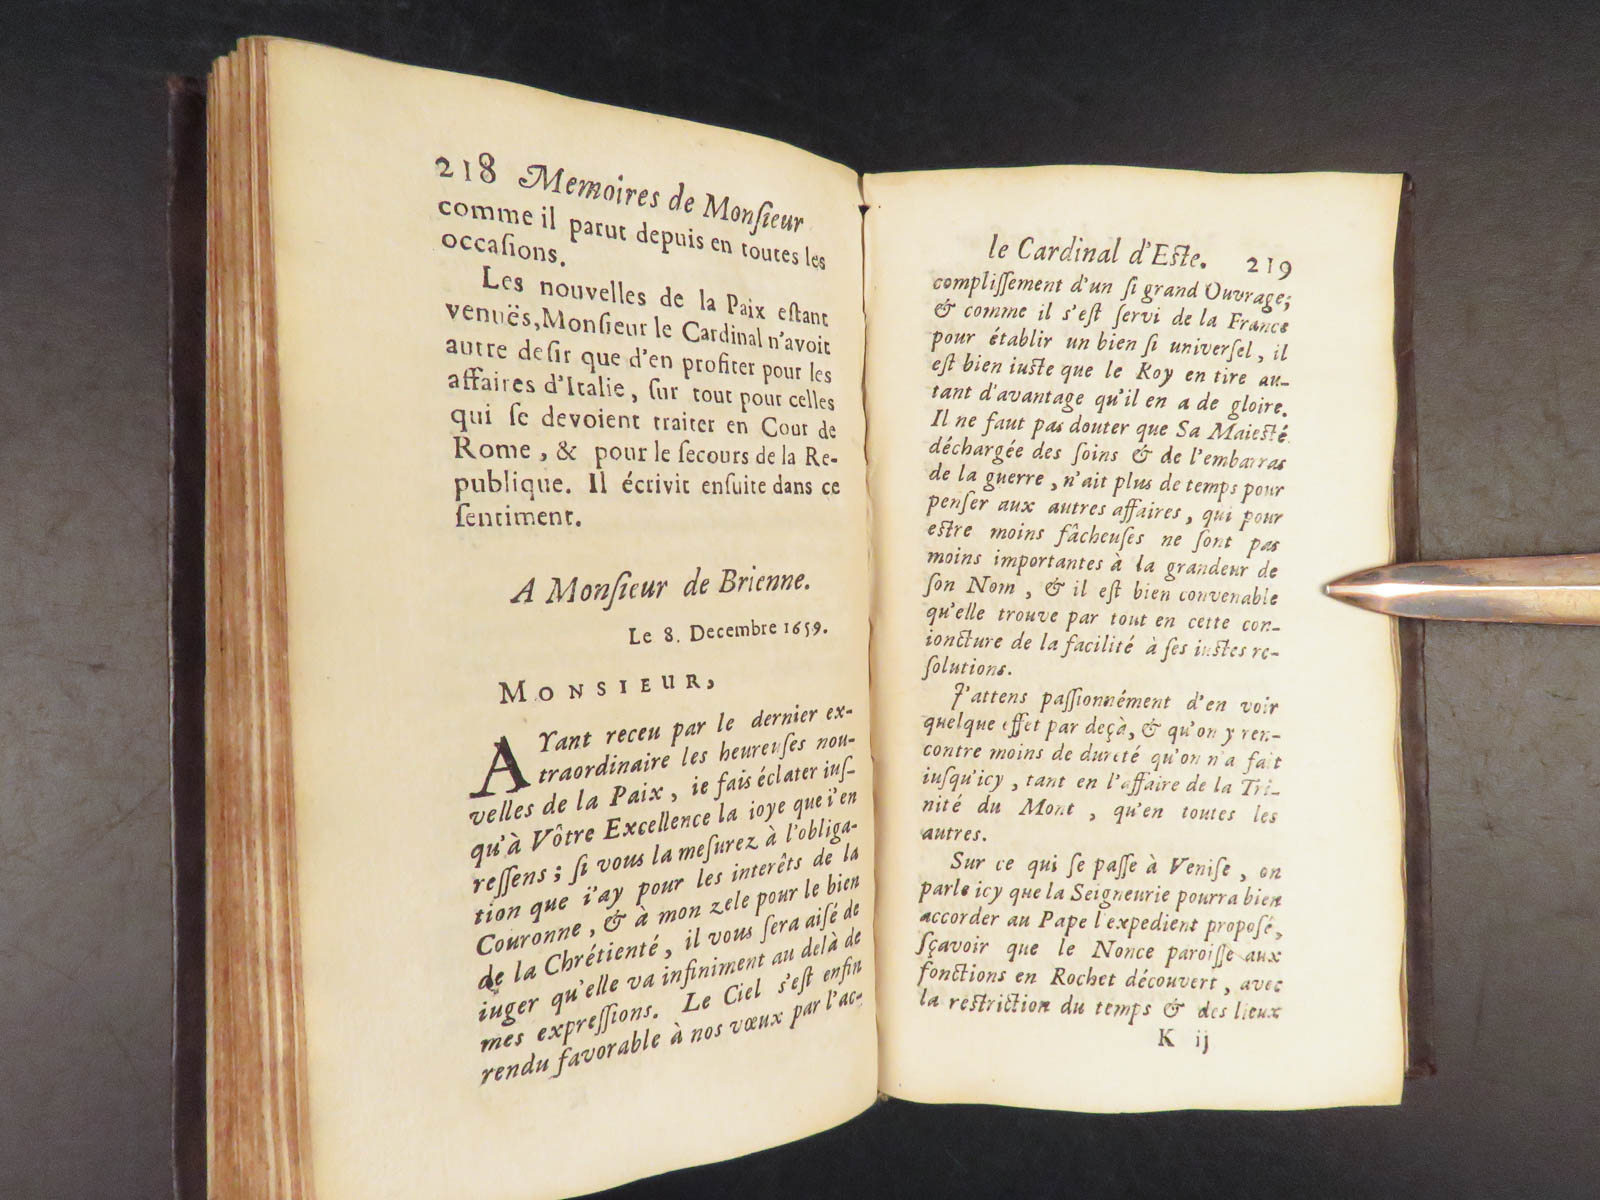 218 Memoires de Monſieur
comme il parut depuis en toutes les
occaſions.
Les nouvelles de la Paix eſtant
venuës, Monſieur le Cardinal n'avoit
autre deſir que d'en profiter pour les
affaires d'Italie, ſur tout pour celles
qui ſe devoient traiter en Cour de
Rome, & pour le ſecours de la Re-
publique. Il écrivit enſuite dans ce
ſentiment.
A Monſieur de Brienne.
Le 8. Decembre 1659.
MONSIEUR,
AYant receu par le dernier ex-
traordinaire les heureuſes nou-
velles de la Paix, ie fais éclater iuſ-
qu'à Vôtre Excellence la ioye que i'en
reſſens; ſi vous la meſurez à l'obliga-
tion que i'ay pour les interêts de la
Couronne, & à mon zele pour le bien
de la Chrétienté, il vous ſera aiſé de
iuger qu'elle va infiniment au delà de
mes expreſſions. Le Ciel s'eſt enfin
rendu favorable à nos vœux par l'ac-
le Cardinal d'Eſte. 219
compliſſement d'un ſi grand Ouvrage;
& comme il s'eſt ſervi de la France
pour établir un bien ſi univerſel, il
eſt bien iuſte que le Roy en tire au-
tant d'avantage qu'il en a de gloire.
Il ne faut pas douter que Sa Maieſté
déchargée des ſoins & de l'embarras
de la guerre, n'ait plus de temps pour
penſer aux autres affaires, qui pour
eſtre moins fâcheuſes ne ſont pas
moins importantes à la grandeur de
ſon Nom, & il eſt bien convenable
qu'elle trouve par tout en cette con-
ioncture de la facilité à ſes iuſtes re-
ſolutions.
J'attens paſſionnément d'en voir
quelque effet par deçà, & qu'on y ren-
contre moins de dureté qu'on n'a fait
iuſqu'icy, tant en l'affaire de la Tri-
nité du Mont, qu'en toutes les
autres.
Sur ce qui ſe paſſe à Veniſe, on
parle icy que la Seigneurie pourra bien
accorder au Pape l'expedient propoſé,
ſçavoir que le Nonce paroiſſe aux
fonctions en Rochet découvert, avec
la reſtriction du temps & des lieux
K ij